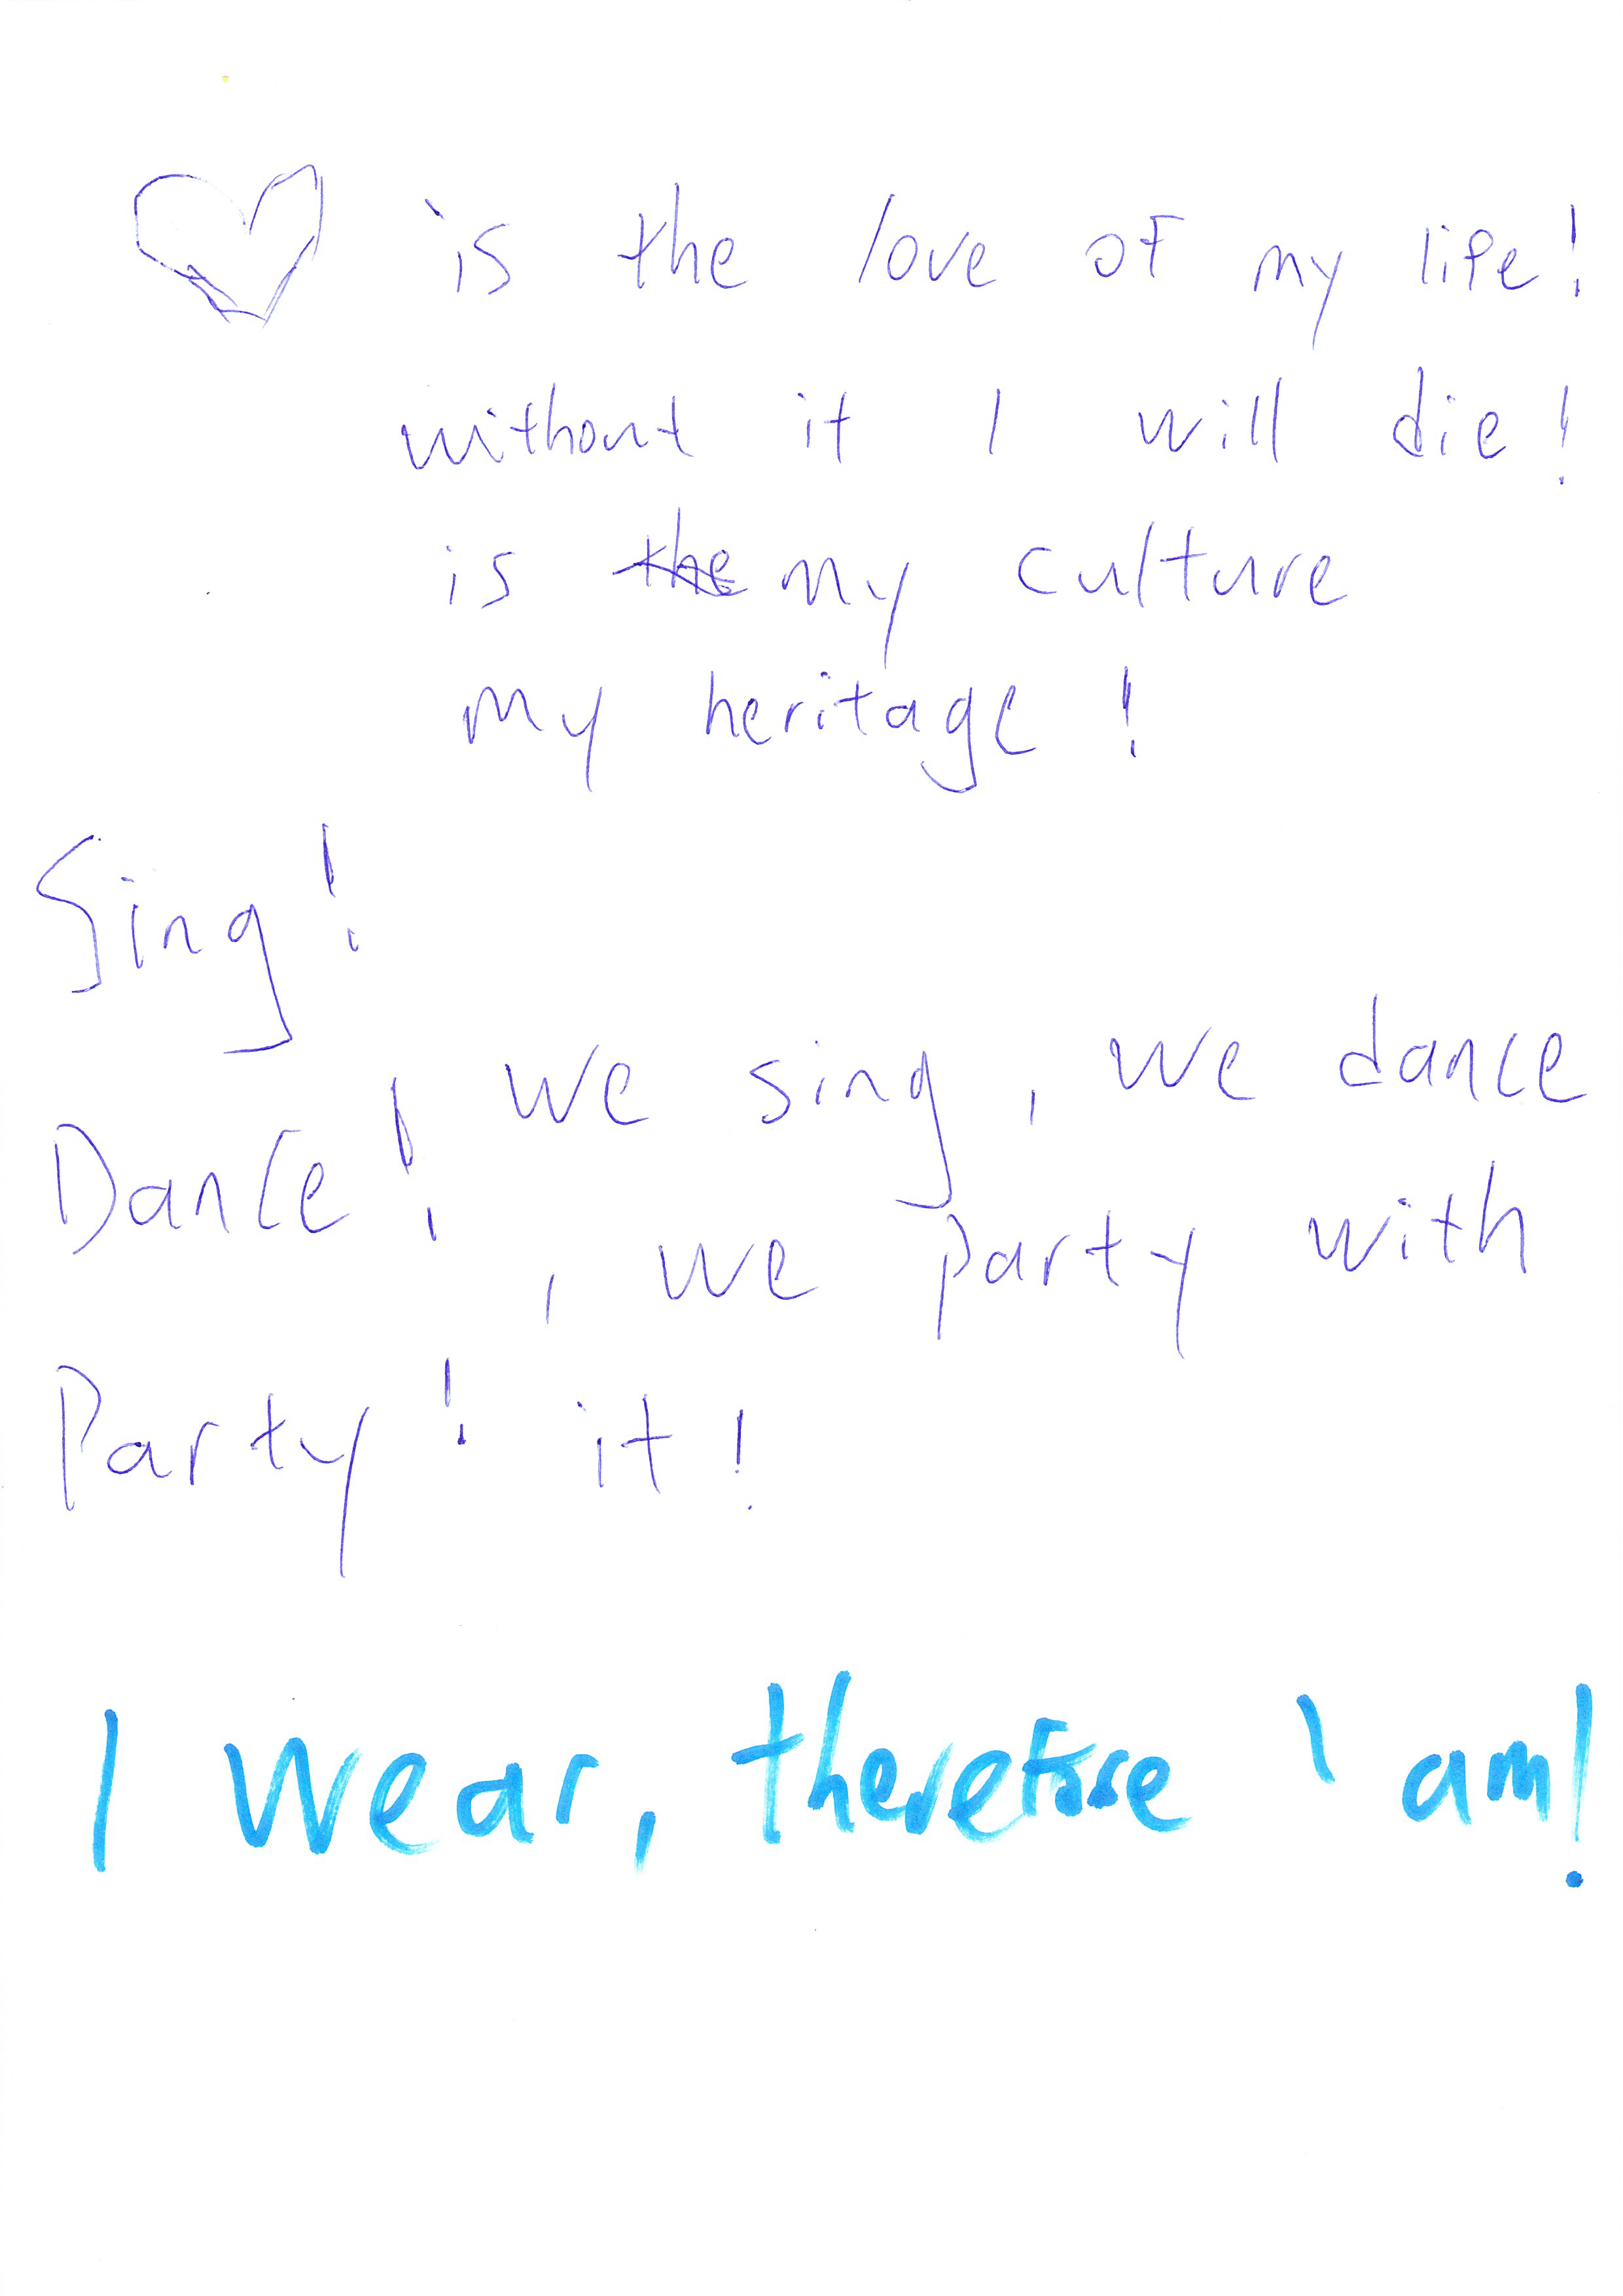 is the love of my life!
without it I will die!
is the my culture
my heritage!
Sing!
we sing, we dance
Dance!
, we party with
Party! it!
I wear, therefore I am!